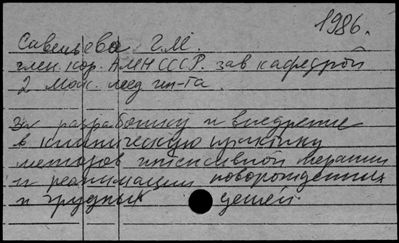 1986.
Савельева Г.М.
член. кор. АМН СССР. зав кафедрой
2 Моск. мед ин-та.
за разработку и внедрение
в клиническую практику
методов интенсивной терапии
и реанимации новорожденных
и грудных детей